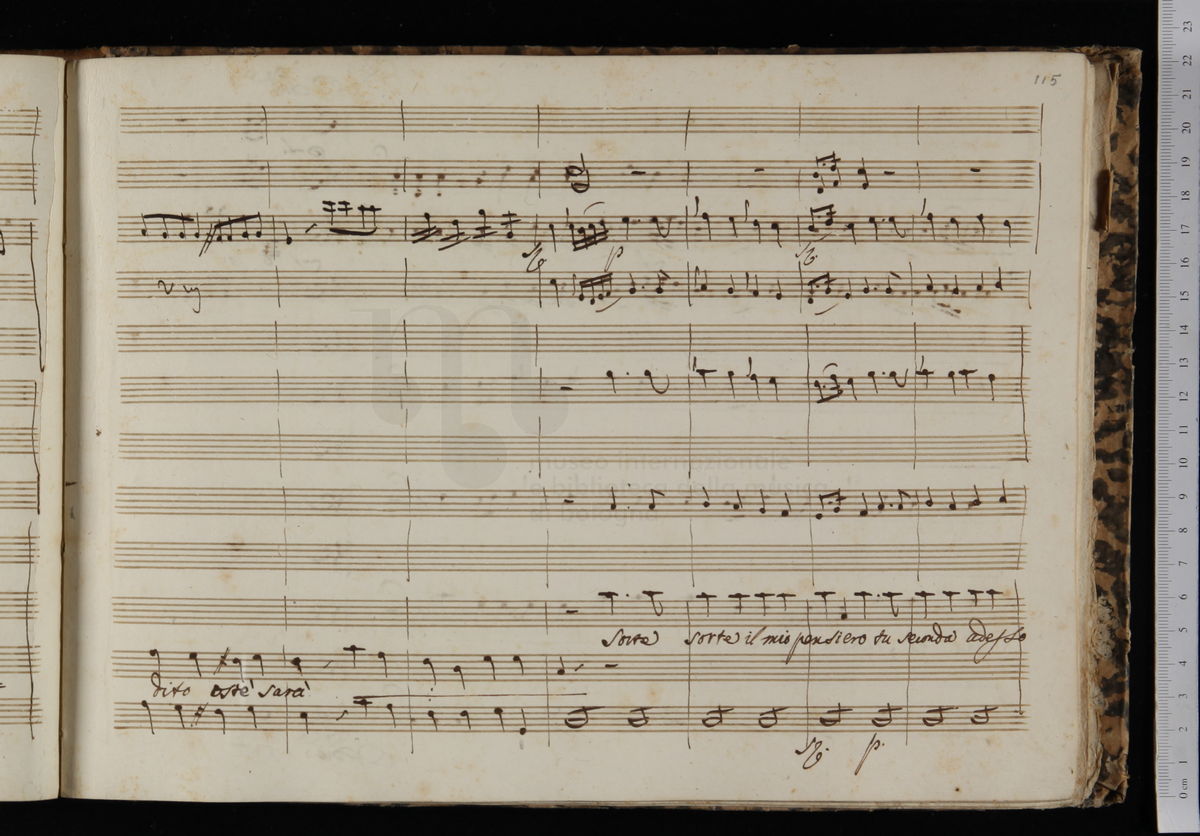 115
p
museo internazionale
e biblioteca della musica
di bologna
Sorte sorte il mio pensiero tu seconda adesso
dito sarà
p.
23
22
21
20
19
18
17
16
15
14
13
12
11
10
9
8
7
6
5
4
3
2
1
0 cm